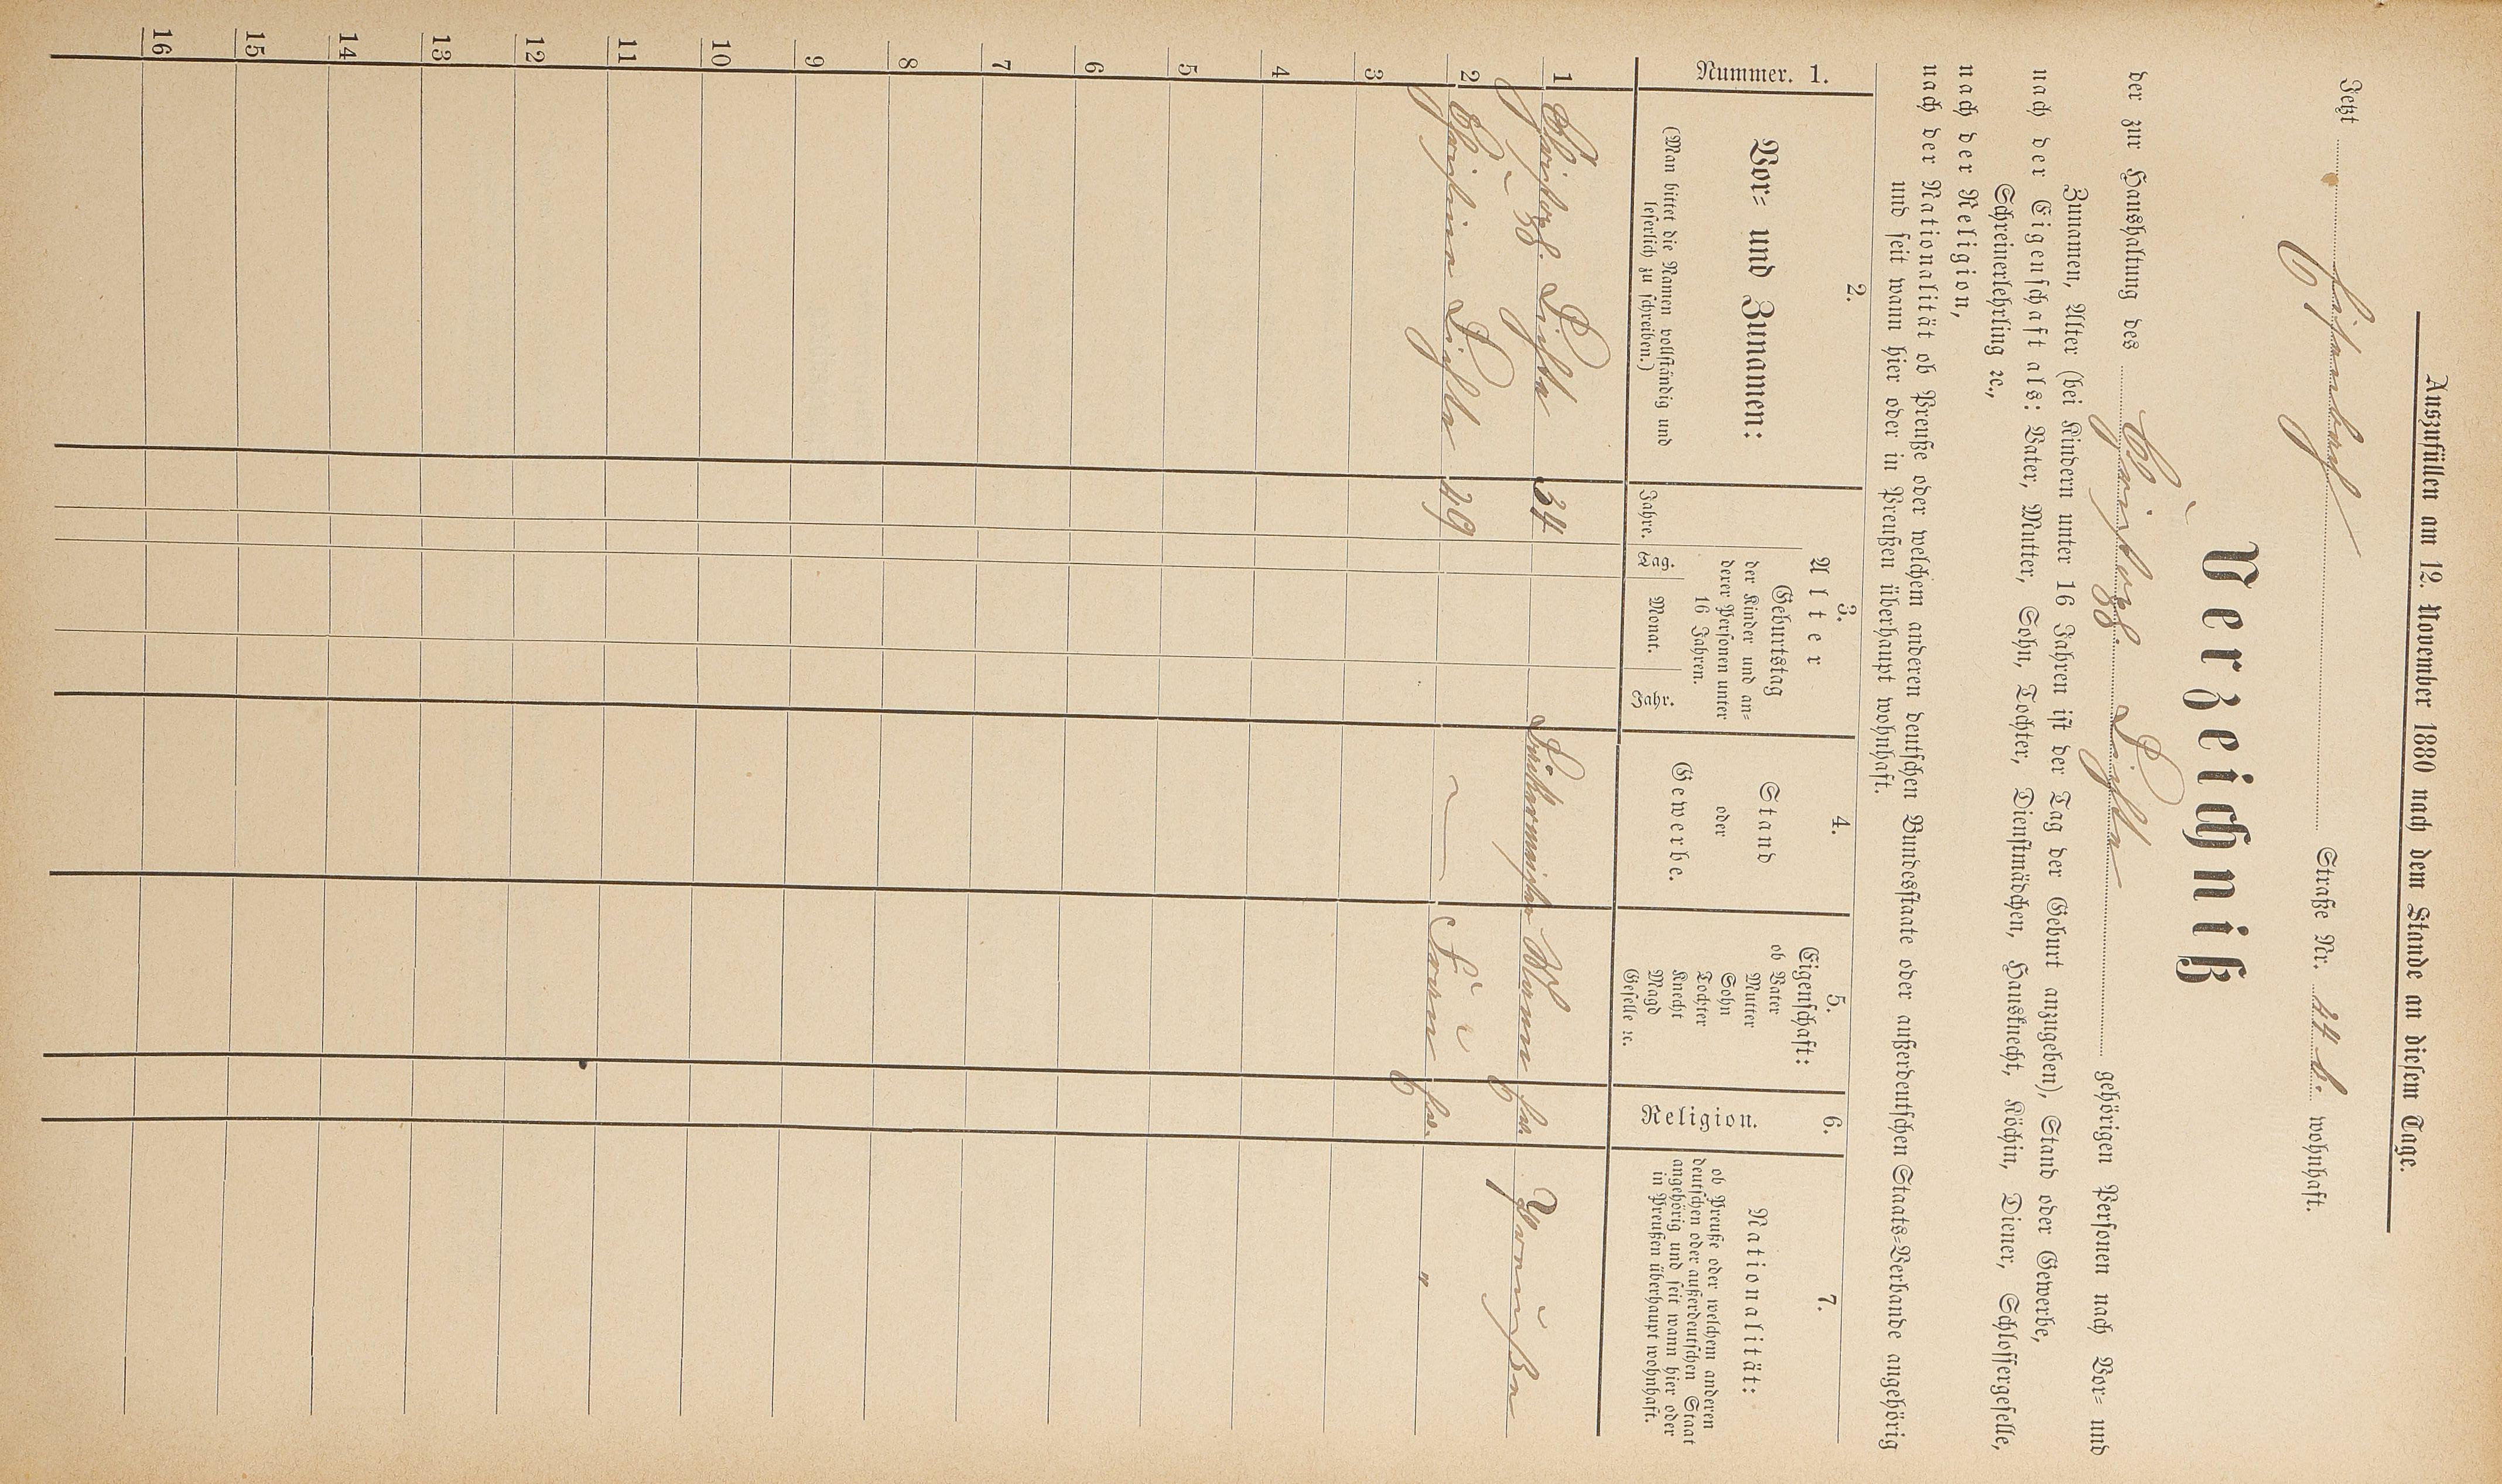 Auszufüllen am 12. November 1880 nach dem Stande an diesem Tage.
Jetzt Straße Nr. wohnhaft.
Verzeichniß
der zur Haushaltung des gehörigen Personen nach Vor= und
Zunamen, Alter (bei Kindern unter 16 Jahren ist der Tag der Geburt anzugeben), Stand oder Gewerbe,
nach der Eigenschaft als: Vater, Mutter, Sohn, Tochter, Dienstmädchen, Hausknecht, Köchin, Diener, Schlossergeselle,
Schreinerlehrling ꝛc.,
nach der Religion,
nach der Nationalität ob Preuße oder welchem anderen deutschen Bundesstaate oder außerdeutschen Staats=Verbande angehörig
und seit wann hier oder in Preußen überhaupt wohnhaft.
Nummer. 1.
2.
Vor= und Zunamen:
(Man bittet die Namen vollständig und
leserlich zu schreiben.)
3.
Alter
Jahre.
Geburtstag
der Kinder und an=
derer Personen unter
16 Jahren.
Tag. Monat. Jahr.
4.
Stand
oder
Gewerbe.
5.
Eigenschaft:
ob Vater
Mutter
Sohn
Tochter
Knecht
Magd
Geselle ꝛc.
6.
Religion.
7.
Nationalität:
ob Preuße oder welchem anderen
deutschen oder außerdeutschen Staat
angehörig und seit wann hier oder
in Preußen überhaupt wohnhaft.
1 34 Mann Preuße
2 49 Frau "
3
4
5
6
7
8
9
10
11
12
13
14
15
16